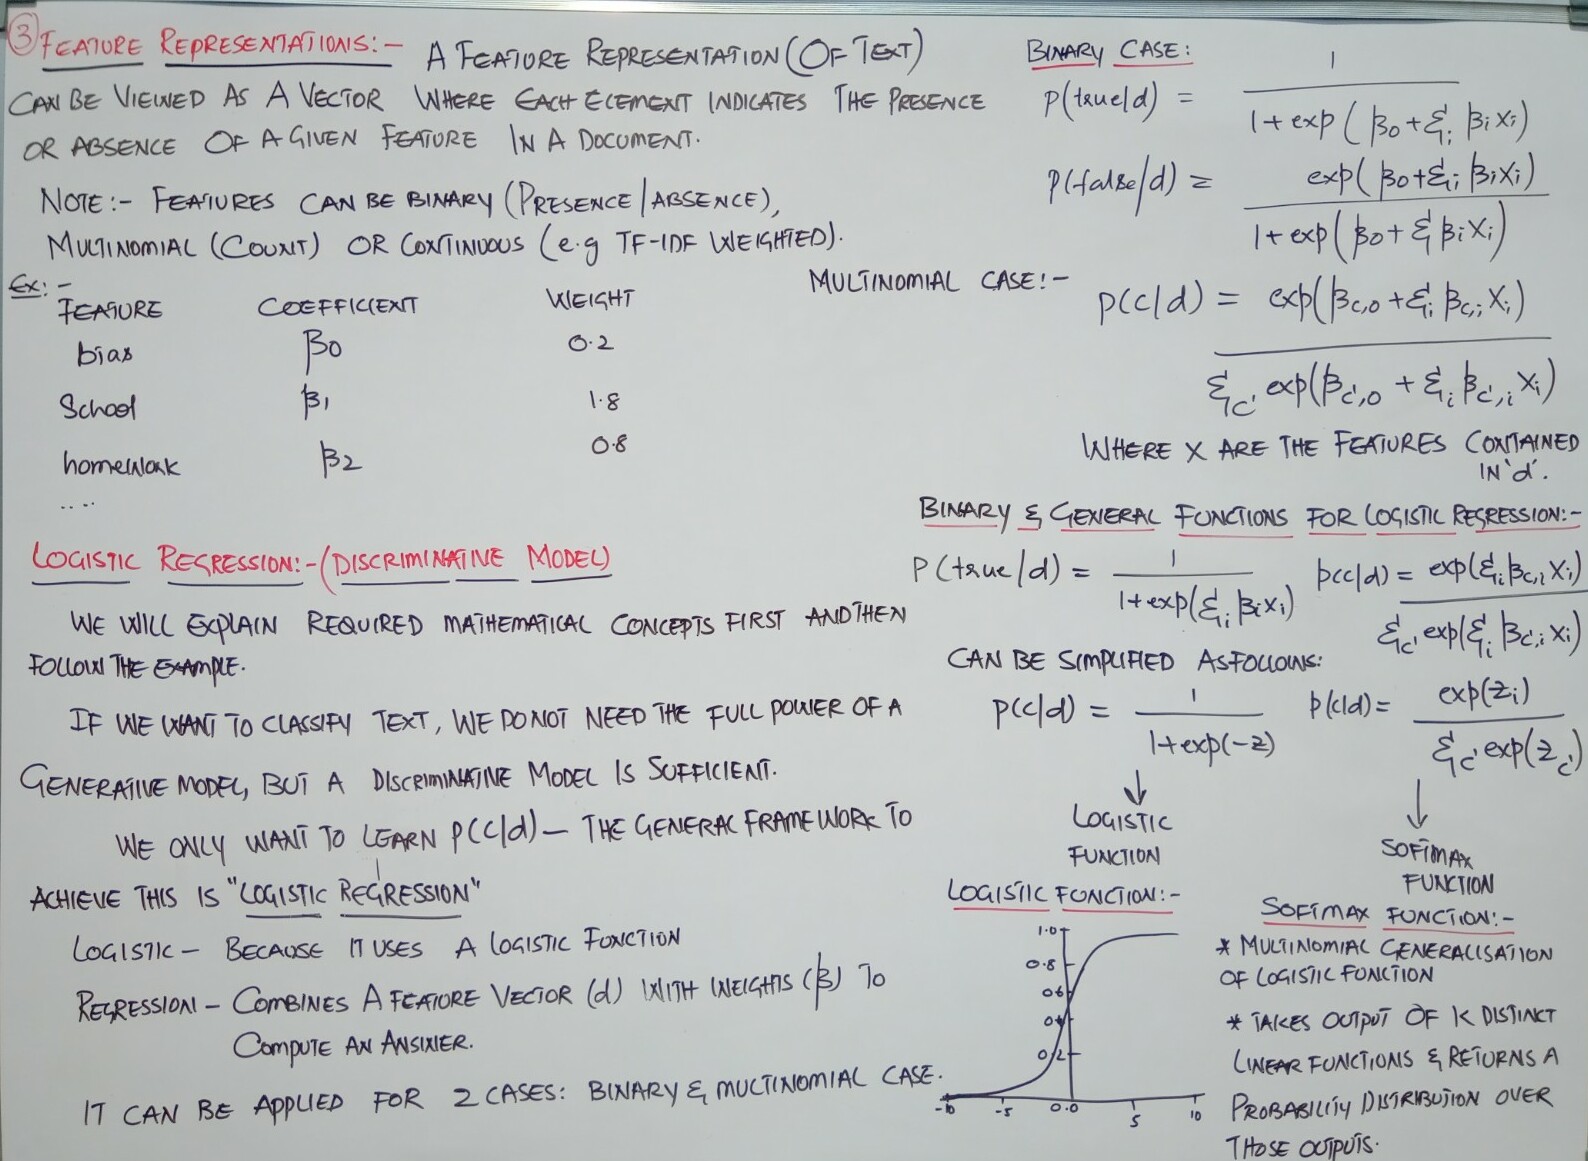 ③ FEATURE REPRESENTATIONS:- A FEATURE REPRESENTATION (OF TEXT)
CAN BE VIEWED AS A VECTOR WHERE EACH ELEMENT INDICATES THE PRESENCE
OR ABSENCE OF A GIVEN FEATURE IN A DOCUMENT.
NOTE:- FEATURES CAN BE BINARY (PRESENCE/ABSENCE),
MULTINOMIAL (COUNT) OR CONTINUOUS (e.g TF-IDF WEIGHTED).
Ex:-
FEATURE COEFFICIENT WEIGHT
bias β0 0.2
School β1 1.8
homework β2 0.8
....
LOGISTIC REGRESSION:-(DISCRIMINATIVE MODEL)
WE WILL EXPLAIN REQUIRED MATHEMATICAL CONCEPTS FIRST AND THEN
FOLLOW THE EXAMPLE.
IF WE WANT TO CLASSIFY TEXT, WE DO NOT NEED THE FULL POWER OF A
GENERATIVE MODEL, BUT A DISCRIMINATIVE MODEL IS SUFFICIENT.
WE ONLY WANT TO LEARN P(C/d) – THE GENERAL FRAMEWORK TO
ACHIEVE THIS IS "LOGISTIC REGRESSION"
LOGISTIC – BECAUSE IT USES A LOGISTIC FUNCTION
REGRESSION – COMBINES A FEATURE VECTOR (d) WITH WEIGHTS (β) TO
COMPUTE AN ANSWER.
IT CAN BE APPLIED FOR 2 CASES: BINARY & MULTINOMIAL CASE.
BINARY CASE:
P(true/d) = 1
1+exp(β0+Σi βixi)
P(false/d) = exp(β0+Σi βixi)
1+exp(β0+Σ βixi)
MULTINOMIAL CASE:-
P(c/d) = exp(βc,0 +Σi βc,i Xi)
Σc' exp(βc',0 + Σi βc',i Xi)
WHERE X ARE THE FEATURES CONTAINED
IN 'd'.
BINARY & GENERAL FUNCTIONS FOR LOGISTIC REGRESSION:-
P(true/d) = 1 P(c/d) = exp(Σi βc,i Xi)
1+exp(Σi βixi) Σc' exp(Σi βc',i Xi)
CAN BE SIMPLIFIED AS FOLLOWS:
P(c/d) = 1 P(c/d) = exp(zi)
1+exp(-z) Σc' exp(zc')
↓ ↓
LOGISTIC
FUNCTION
SOFTMAX
FUNCTION
LOGISTIC FUNCTION:-
1.0
0.8
0.6
0.4
0.2
-10 -5 0.0 5 10
SOFTMAX FUNCTION:-
* MULTINOMIAL GENERALISATION
OF LOGISTIC FUNCTION
* TAKES OUTPUT OF K DISTINCT
LINEAR FUNCTIONS & RETURNS A
PROBABILITY DISTRIBUTION OVER
THOSE OUTPUTS.